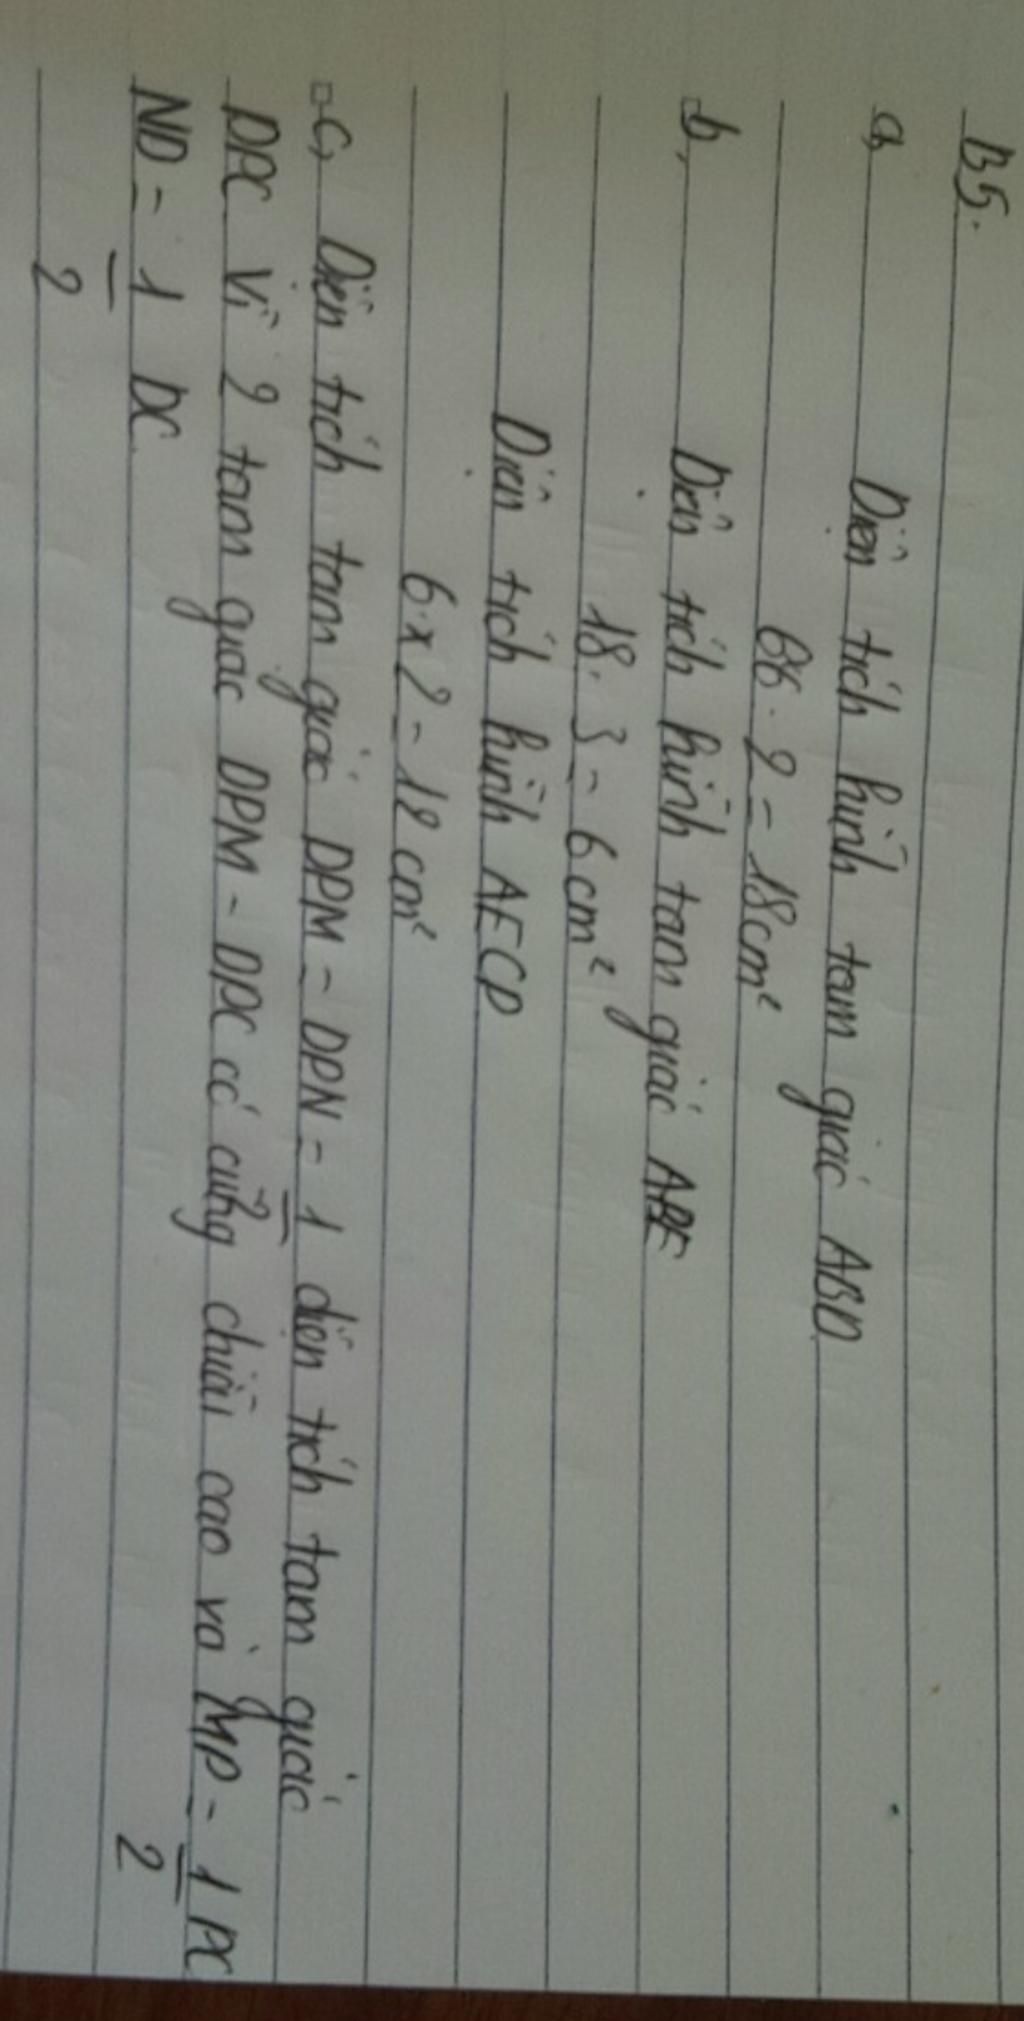 B5.
a, Diện tích hình tam giác ABD
66 : 2 = 18cm²
b, Diện tích hình tam giác ABE
18 : 3 = 6cm²
Diện tích hình AECD
6 x 2 = 12 cm²
c, Diện tích tam giác DPM = DPN = 1 diện tích tam giác
DPC Vì 2 tam giác DPM = DPC có cùng chiều cao và MP = 1/2 PC
ND = 1/2 DC